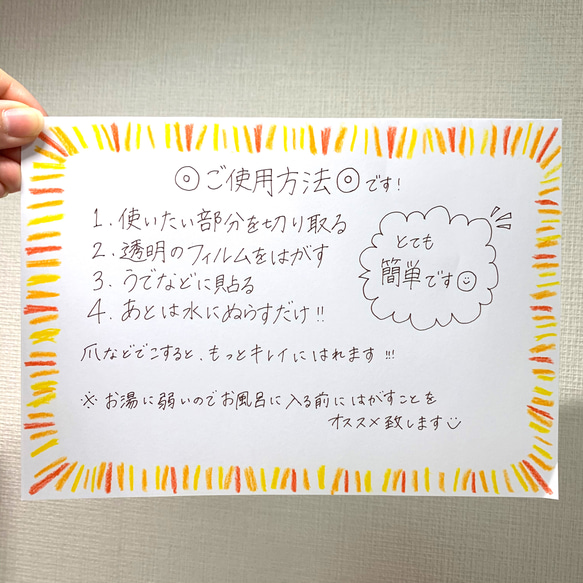 ◎ご使用方法◎です!
1. 使いたい部分を切り取る
2. 透明のフィルムをはがす
3. うでなどに貼る
4. あとは水にぬらすだけ!!
とても
簡単です☺
爪などでこすると、もっとキレイにはれます!!!
※お湯に弱いのでお風呂に入る前にはがすことを
オススメ致します